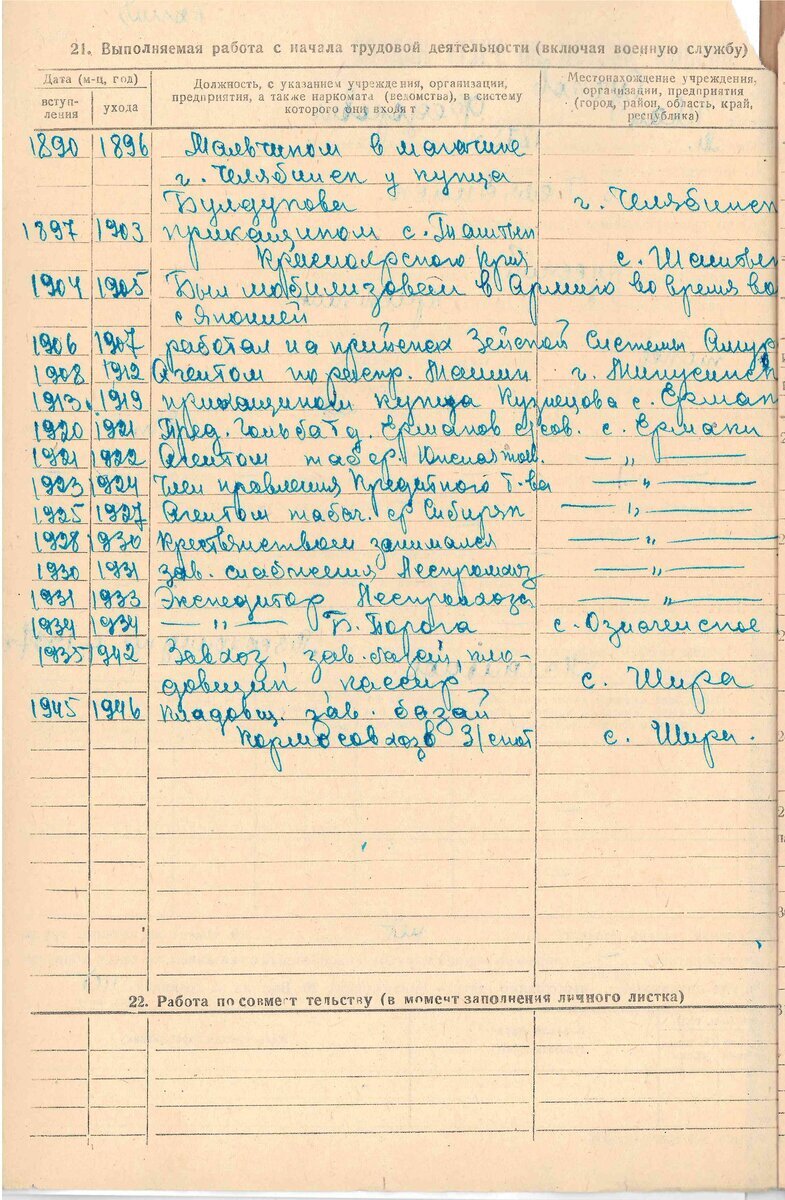 21. Выполняемая работа с начала трудовой деятельности (включая военную службу)
Дата (м-ц, год)
вступ-
ления
ухода
Должность, с указанием учреждения, организации,
предприятия, а также наркомата (ведомства), в систему
которого они входят
Местонахождение учреждения,
организации, предприятия
(город, район, область, край,
республика)
1890 1896 Мальчиком в магазине
г. Челябинск у купца
Булдукова г. Челябинск
1897 1903 приказщиком с.
Красноярского Края с.
1904 1905 Был мобилизован в Армию во время во
с Японией
1906 1907 работал на приисках Зейской Системы Амур
1908 1912 Агентом по Машин г. Минусинск
1913 1919 приказщиком купца Кузнецова с. Ермак
1920 1921 Пред. с. Ермаки
1921 1922 Агентом — " —
1923 1924 Член правления Кредитного Т-ва — " —
1925 1927 Агентом табач. — " —
1928 1930 Крествянством занимался — " —
1930 1931 зав. снабжения Леспромхоз — " —
1931 1933 Экспедитор Леспромхоза — " —
1934 1934 — " — Б. Порога с. Означенское
1935 1942 Завхоз, зав. базай, кла-
довщик, кассир с. Шира
1945 1946 кладовщ. зав. базай
с. Шира.
22. Работа по совмест тельству (в момент заполнения личного листка)